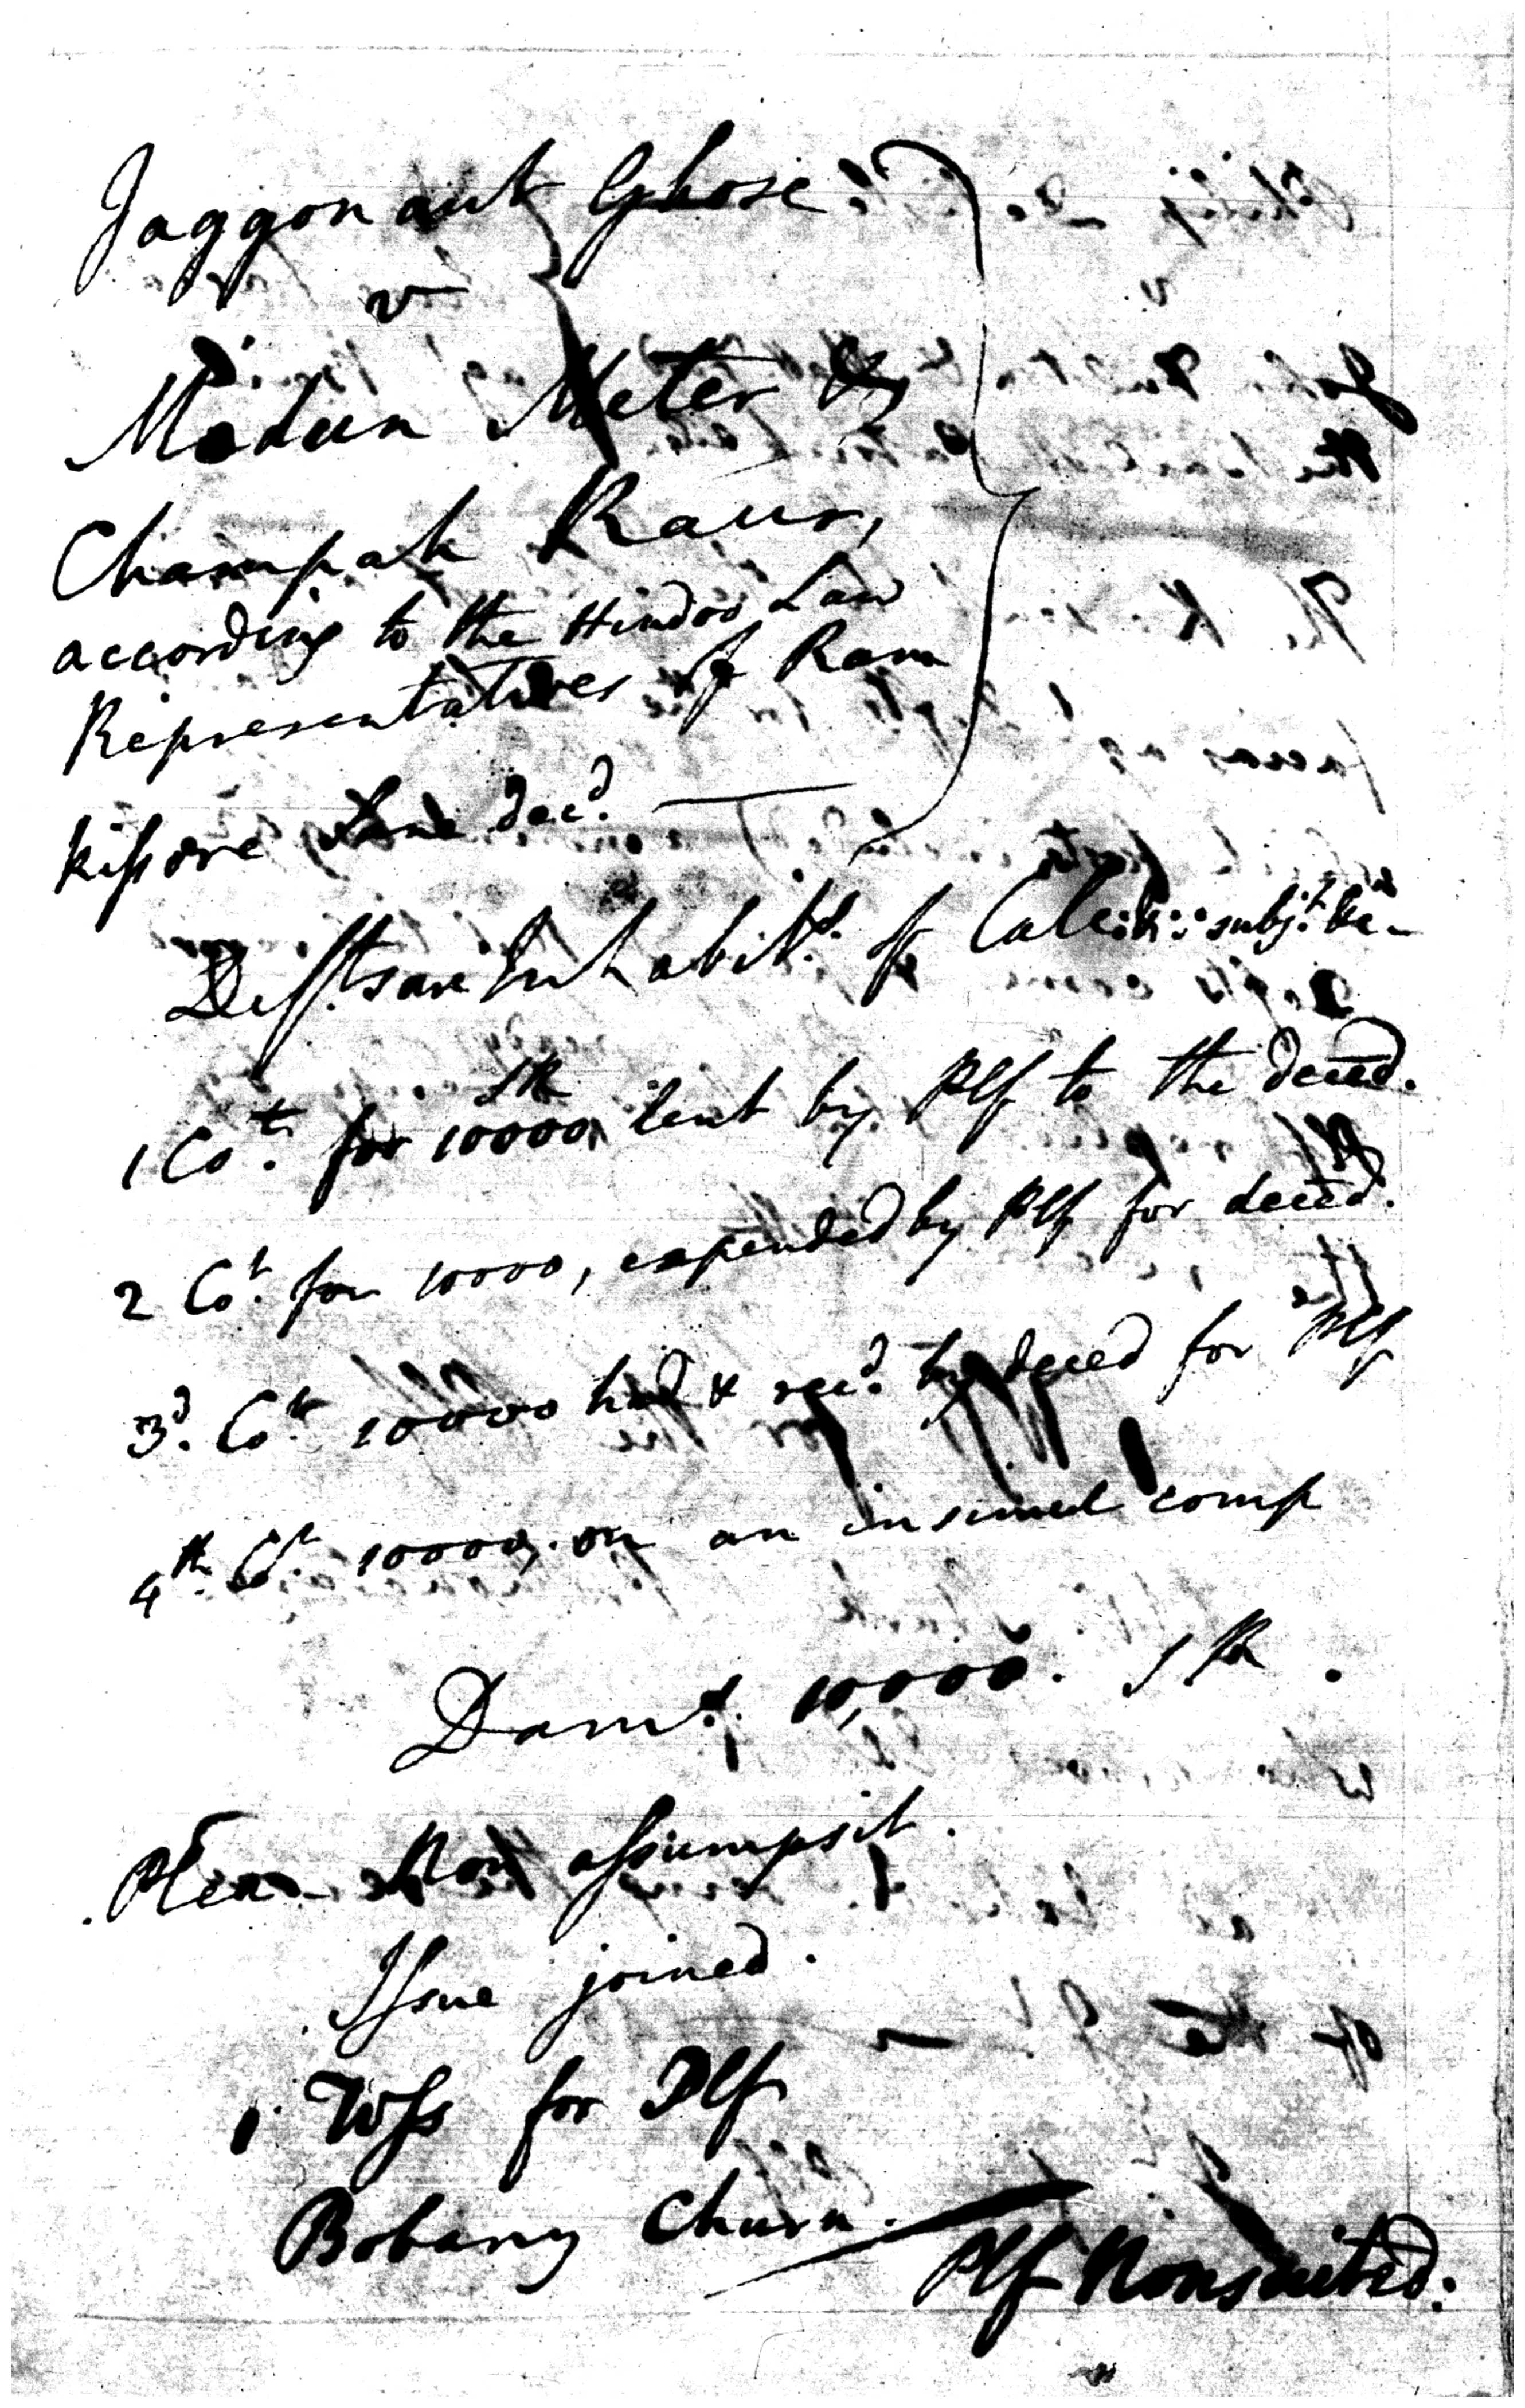 Jaggonaut Ghose
v
Modun Meter &
Champah Raur,
according to the Hindoo Law
Representatives of Ram
Kissore decd.
Defts are Inhabits. of Calc: subjt. &c
1 Cot. for 10000 SR lent by Plf to the deced.
2 Cot. for 10000, expended by Plf for deced.
3d. Cot. 10000 had & recd. by deced for Plf
4th. Ct. 10000, on an insimul comp
Dams. 10,000. SR.
Plea Non assumpsit.
Issue joined.
1. Wss for Plf
Bobany Churn.
Plf Nonsuited: